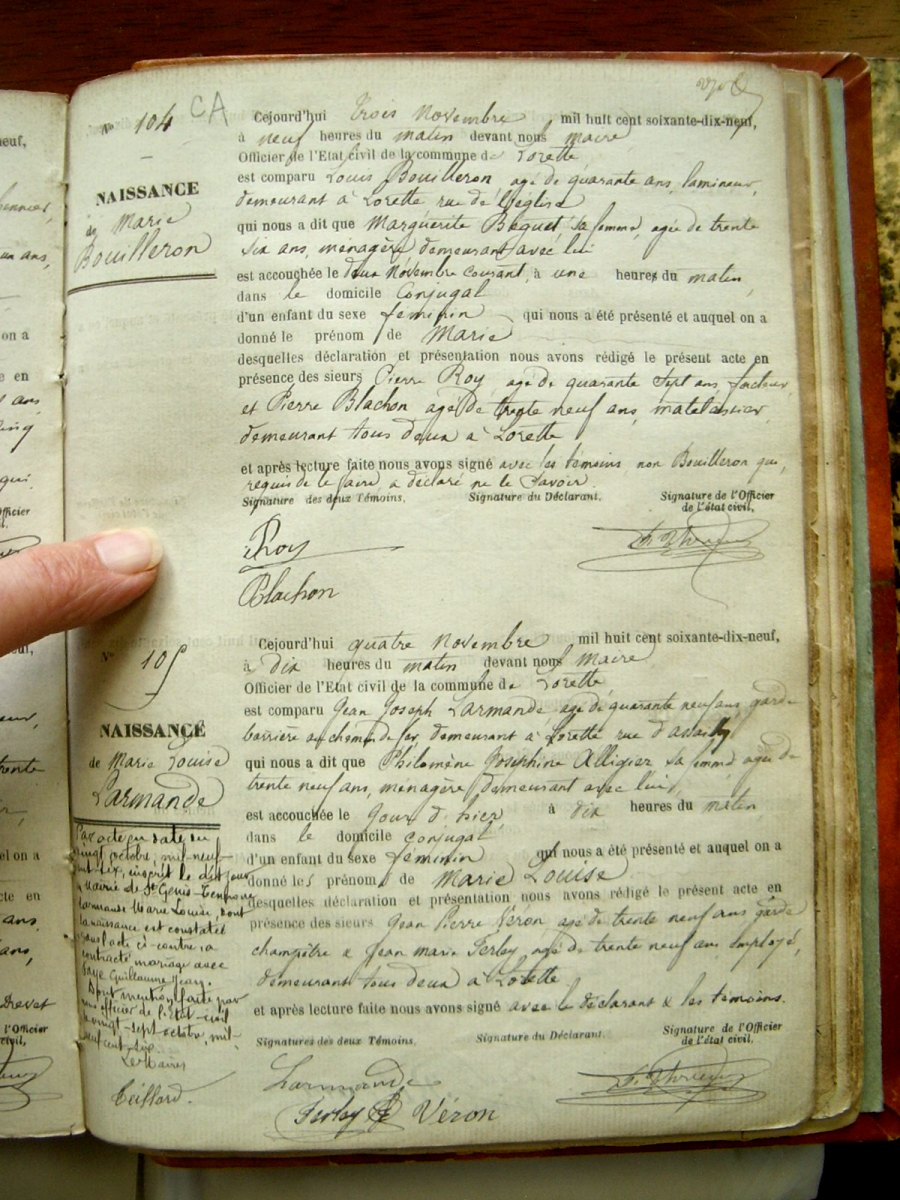 N° 104 CA
NAISSANCE
de Marie
Bouilleron
Cejourd'hui trois Novembre mil huit cent soixante-dix-neuf,
à neuf heures du matin devant nous Maire
Officier de l'Etat civil de la commune de Lorette
est comparu Louis Bouilleron agé de quarante ans, lamineur,
demeurant à Lorette rue de l'église
qui nous a dit que Marguerite Béquet, sa femme, agée de trente
six ans, ménagère demeurant avec lui
est accouchée le deux Novembre courant, à une heures du matin,
dans le domicile Conjugal
d'un enfant du sexe féminin qui nous a été présenté et auquel on a
donné le prénom de Marie
desquelles déclaration et présentation nous avons rédigé le présent acte en
présence des sieurs Pierre Roy agé de quarante sept ans facteur
et Pierre Blachon agé de trente neuf ans, matelassier,
demeurant tous deux à Lorette
et après lecture faite nous avons signé avec les témoins non Bouilleron qui,
requis de le faire, a déclaré ne le savoir.
Signature des deux Témoins. Signature du Déclarant. Signature de l'Officier
de l'état civil,
PRoy
Blachon
N° 105
NAISSANCE
de Marie Louise
Larmande
Par acte en date du
vingt octobre, mil-neuf-
cent-six, inscrit le dit jour
à Mairie de St Genis-Terrenoire
Larmande Marie Louise, dont
la naissance est constatée
dans l'acte ci-contre, a
contracté mariage avec
Guillaume Jean.
Dont mention faite par
nous officier de l'état-civil
le vingt-sept octobre, mil-
neuf cent-six.
Le Maire,
Teillard.
Cejourd'hui quatre Novembre mil huit cent soixante-dix-neuf,
à dix heures du matin devant nous Maire
Officier de l'Etat civil de la commune de Lorette
est comparu Jean Joseph Larmande agé de quarante neuf ans garde
barrière au chemin de fer demeurant à Lorette rue d'assailly
qui nous a dit que Philomène Joséphine Alligier sa femme agée de
trente neuf ans, ménagère, demeurant avec lui,
est accouchée le Jour d'hier, à dix heures du matin
dans le domicile conjugal
d'un enfant du sexe féminin qui nous a été présenté et auquel on a
donné les prénoms de Marie Louise
desquelles déclaration et présentation nous avons rédigé le présent acte en
présence des sieurs Jean Pierre Véron agé de trente neuf ans garde
champêtre & Jean Marie Ferley agé de trente neuf ans employé,
demeurant tous deux à Lorette
et après lecture faite nous avons signé avec le déclarant & les témoins.
Signatures des deux Témoins. Signature du Déclarant. Signature de l'Officier
de l'état civil,
Larmande
Ferley Véron